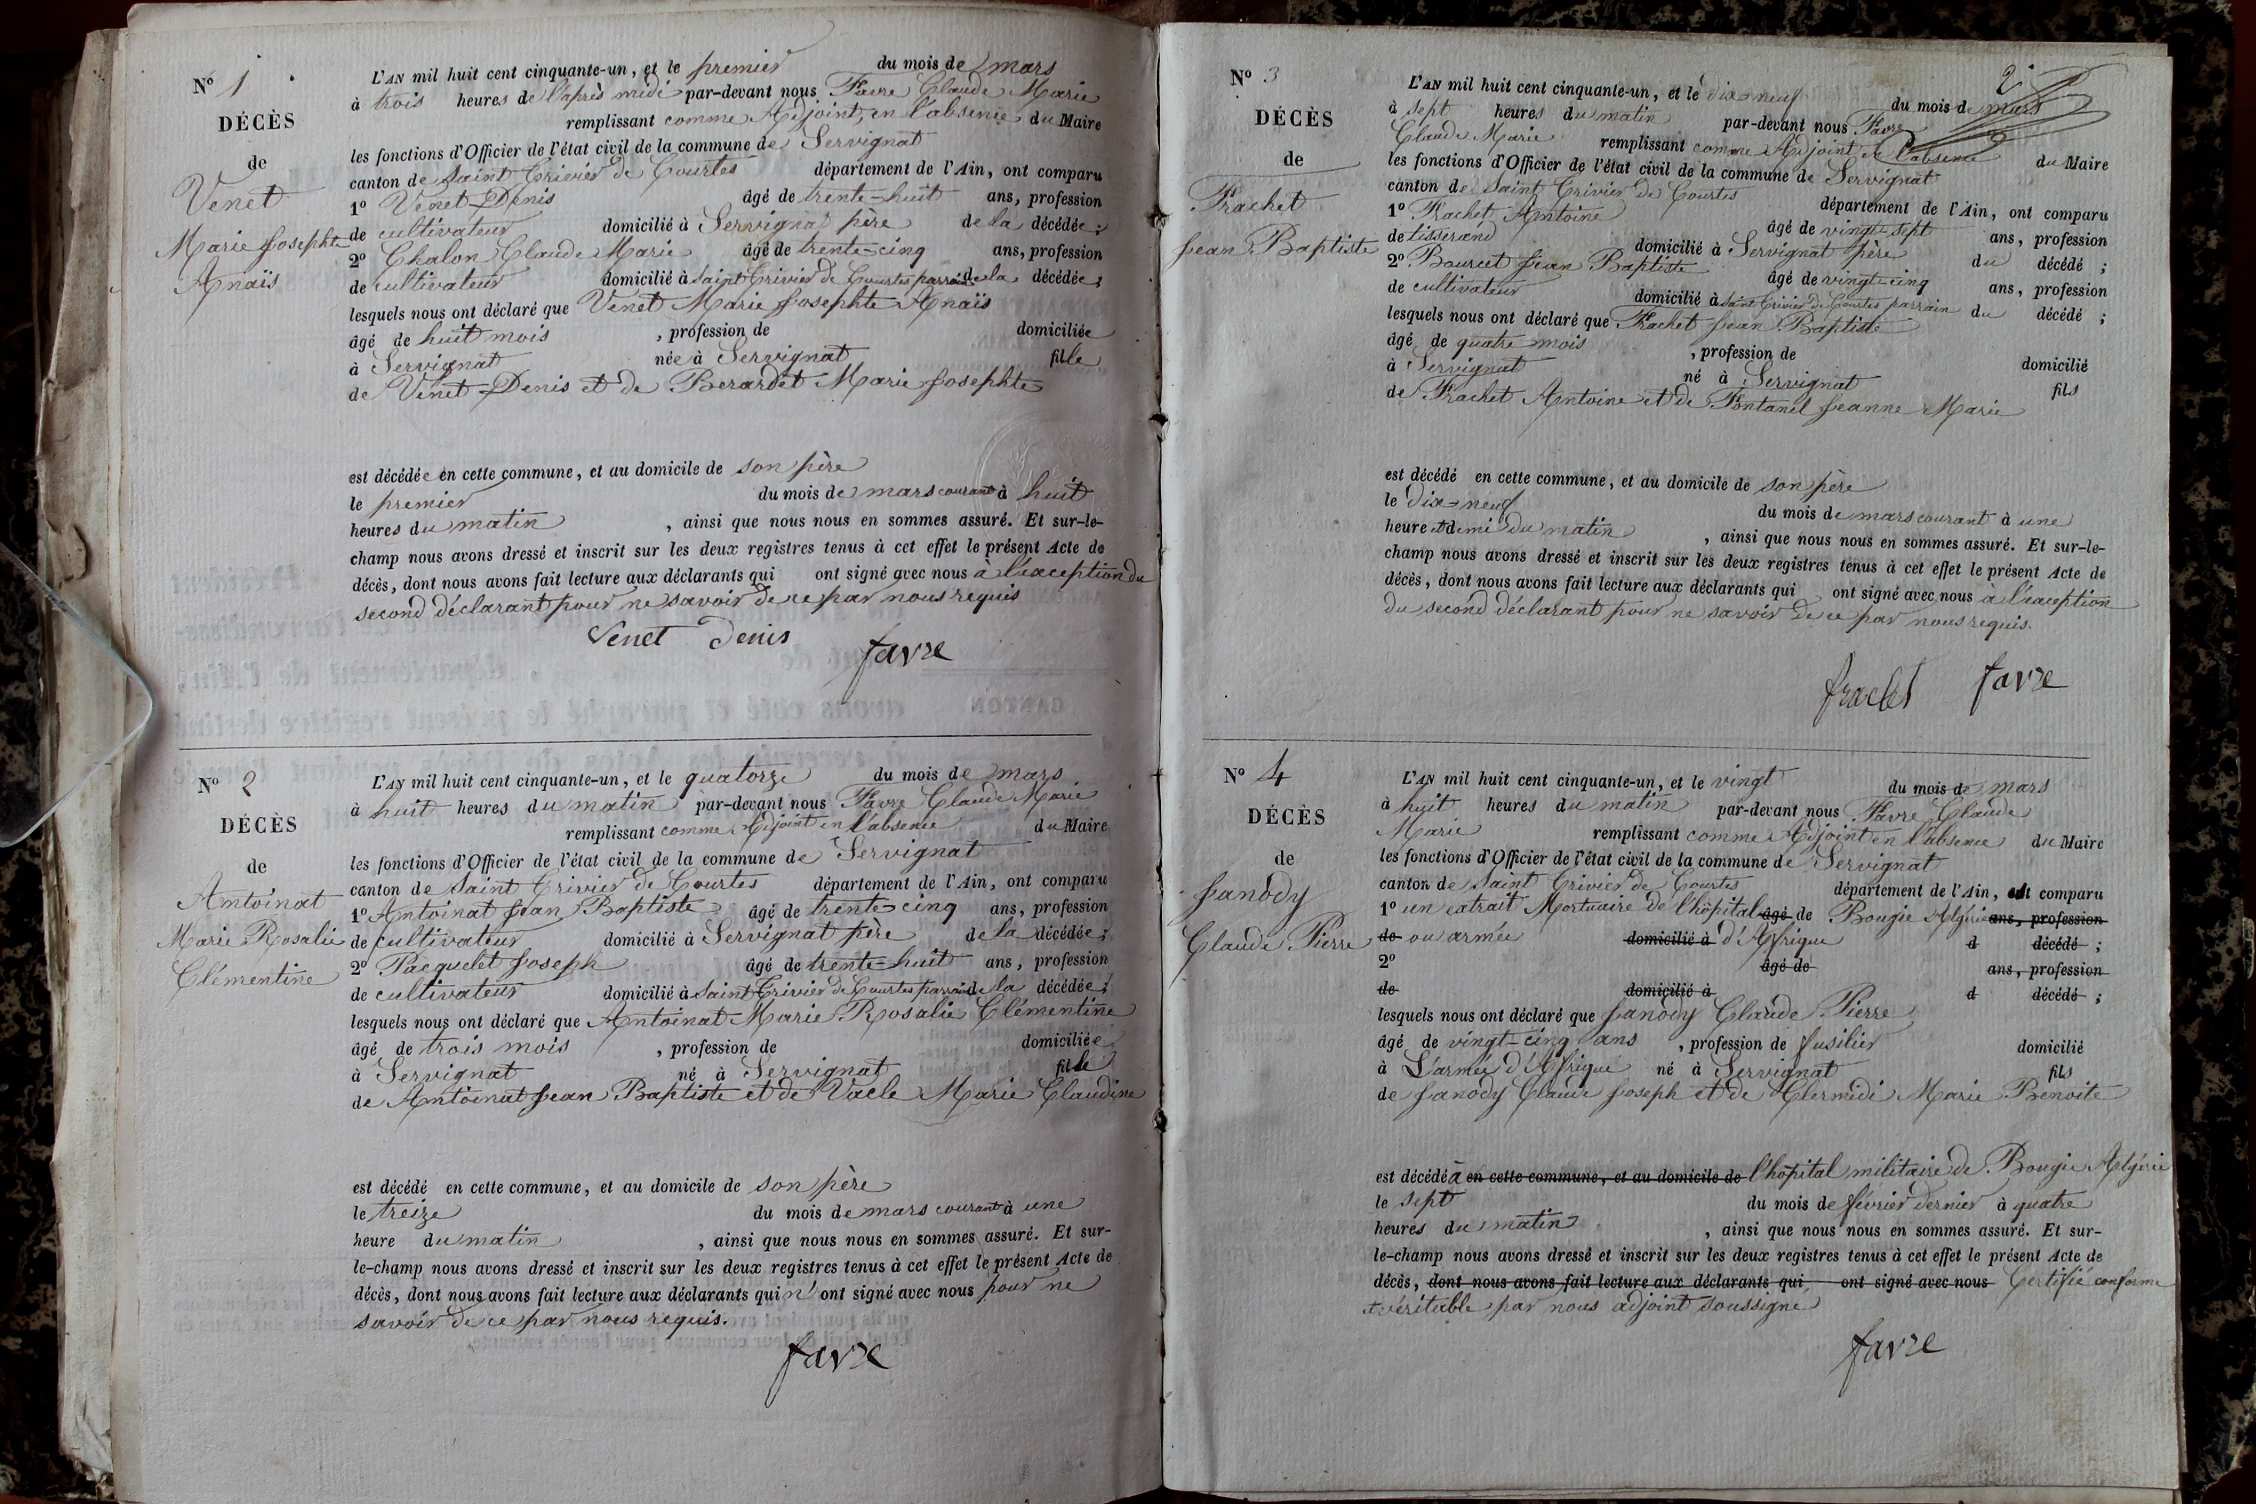 N° 1
DÉCÈS
de
Venet
Marie Josephte
Anaïs
L'AN mil huit cent cinquante-un, et le premier du mois de mars
à trois heures de l'après midi par-devant nous Favre Claude Marie
remplissant comme Adjoint, en l'absence du Maire
les fonctions d'Officier de l'état civil de la commune de Servignat
canton de Saint Trivier de Courtes département de l'Ain, ont comparu
1° Venet Denis âgé de trente-huit ans, profession
de cultivateur domicilié à Servignat père de la décédée ;
2° Chalon Claude Marie âgé de trente-cinq ans, profession
de cultivateur domicilié à Saint Trivier de Courtes parrain de la décédée ;
lesquels nous ont déclaré que Venet Marie Josephte Anaïs
âgé de huit mois , profession de domiciliée
à Servignat née à Servignat fille
de Venet Denis et de Berardet Marie Josephte
est décédée en cette commune, et au domicile de son père
le premier du mois de mars courant à huit
heures du matin , ainsi que nous nous en sommes assuré. Et sur-le-
champ nous avons dressé et inscrit sur les deux registres tenus à cet effet le présent Acte de
décès, dont nous avons fait lecture aux déclarants qui ont signé avec nous à l'exception du
second déclarant pour ne savoir de ce par nous requis
Venet Denis favre
N° 2
DÉCÈS
de
Antoinat
Marie Rosalie
Clémentine
L'AN mil huit cent cinquante-un, et le quatorze du mois de mars
à huit heures du matin par-devant nous Favre Claude Marie
remplissant comme Adjoint en l'absence du Maire
les fonctions d'Officier de l'état civil de la commune de Servignat
canton de Saint Trivier de Courtes département de l'Ain, ont comparu
1° Antoinat Jean Baptiste âgé de trente-cinq ans, profession
de cultivateur domicilié à Servignat père de la décédée ;
2° Pacquelet Joseph âgé de trente-huit ans, profession
de cultivateur domicilié à Saint Trivier de Courtes parrain de la décédée ;
lesquels nous ont déclaré que Antoinat Marie Rosalie Clémentine
âgé de trois mois , profession de domiciliée
à Servignat né à Servignat fille
de Antoinat Jean Baptiste et de Vacle Marie Claudine
est décédé en cette commune, et au domicile de son père
le treize du mois de mars courant à une
heure du matin , ainsi que nous nous en sommes assuré. Et sur-
le-champ nous avons dressé et inscrit sur les deux registres tenus à cet effet le présent Acte de
décès, dont nous avons fait lecture aux déclarants qui n' ont signé avec nous pour ne
savoir de ce par nous requis.
favre
2
N° 3
DÉCÈS
de
Frachet
Jean Baptiste
L'AN mil huit cent cinquante-un, et le dix-neuf du mois de mars
à sept heures du matin par-devant nous Favre
Claude Marie remplissant comme Adjoint en l'absence du Maire
les fonctions d'Officier de l'état civil de la commune de Servignat
canton de Saint Trivier de Courtes département de l'Ain, ont comparu
1° Frachet Antoine âgé de vingt-sept ans, profession
de tisserand domicilié à Servignat père du décédé ;
2° Bourcet Jean Baptiste âgé de vingt-cinq ans, profession
de cultivateur domicilié à Saint Trivier de Courtes parrain du décédé ;
lesquels nous ont déclaré que Frachet Jean Baptiste
âgé de quatre mois , profession de domicilié
à Servignat né à Servignat fils
de Frachet Antoine et de Fontanel Jeanne Marie
est décédé en cette commune, et au domicile de son père
le dix-neuf du mois de mars courant à une
heure et demi du matin , ainsi que nous nous en sommes assuré. Et sur-le-
champ nous avons dressé et inscrit sur les deux registres tenus à cet effet le présent Acte de
décès, dont nous avons fait lecture aux déclarants qui ont signé avec nous à l'exception
du second déclarant pour ne savoir de ce par nous requis.
frachet favre
N° 4
DÉCÈS
de
Janody
Claude Pierre
L'AN mil huit cent cinquante-un, et le vingt du mois de mars
à huit heures du matin par-devant nous Favre Claude
Marie remplissant comme Adjoint en l'absence du Maire
les fonctions d'Officier de l'état civil de la commune de Servignat
canton de Saint Trivier de Courtes département de l'Ain, est comparu
1° un extrait Mortuaire de l'hôpital âgé de Bougie Algérie ans, profession
de ou armée domicilié à d'Afrique d décédé ;
2° âgé de ans, profession
de domicilié à d décédé ;
lesquels nous ont déclaré que Janody Claude Pierre
âgé de vingt-cinq ans , profession de fusilier domicilié
à L'armée d'Afrique né à Servignat fils
de Janody Claude Joseph et de Clermidi Marie Benoite
est décédé à en cette commune, et au domicile de l'hôpital militaire de Bougie Algérie
le sept du mois de février dernier à quatre
heures du matin , ainsi que nous nous en sommes assuré. Et sur-
le-champ nous avons dressé et inscrit sur les deux registres tenus à cet effet le présent Acte de
décès, dont nous avons fait lecture aux déclarants qui ont signé avec nous Certifié conforme
et véritable par nous adjoint soussigné
favre